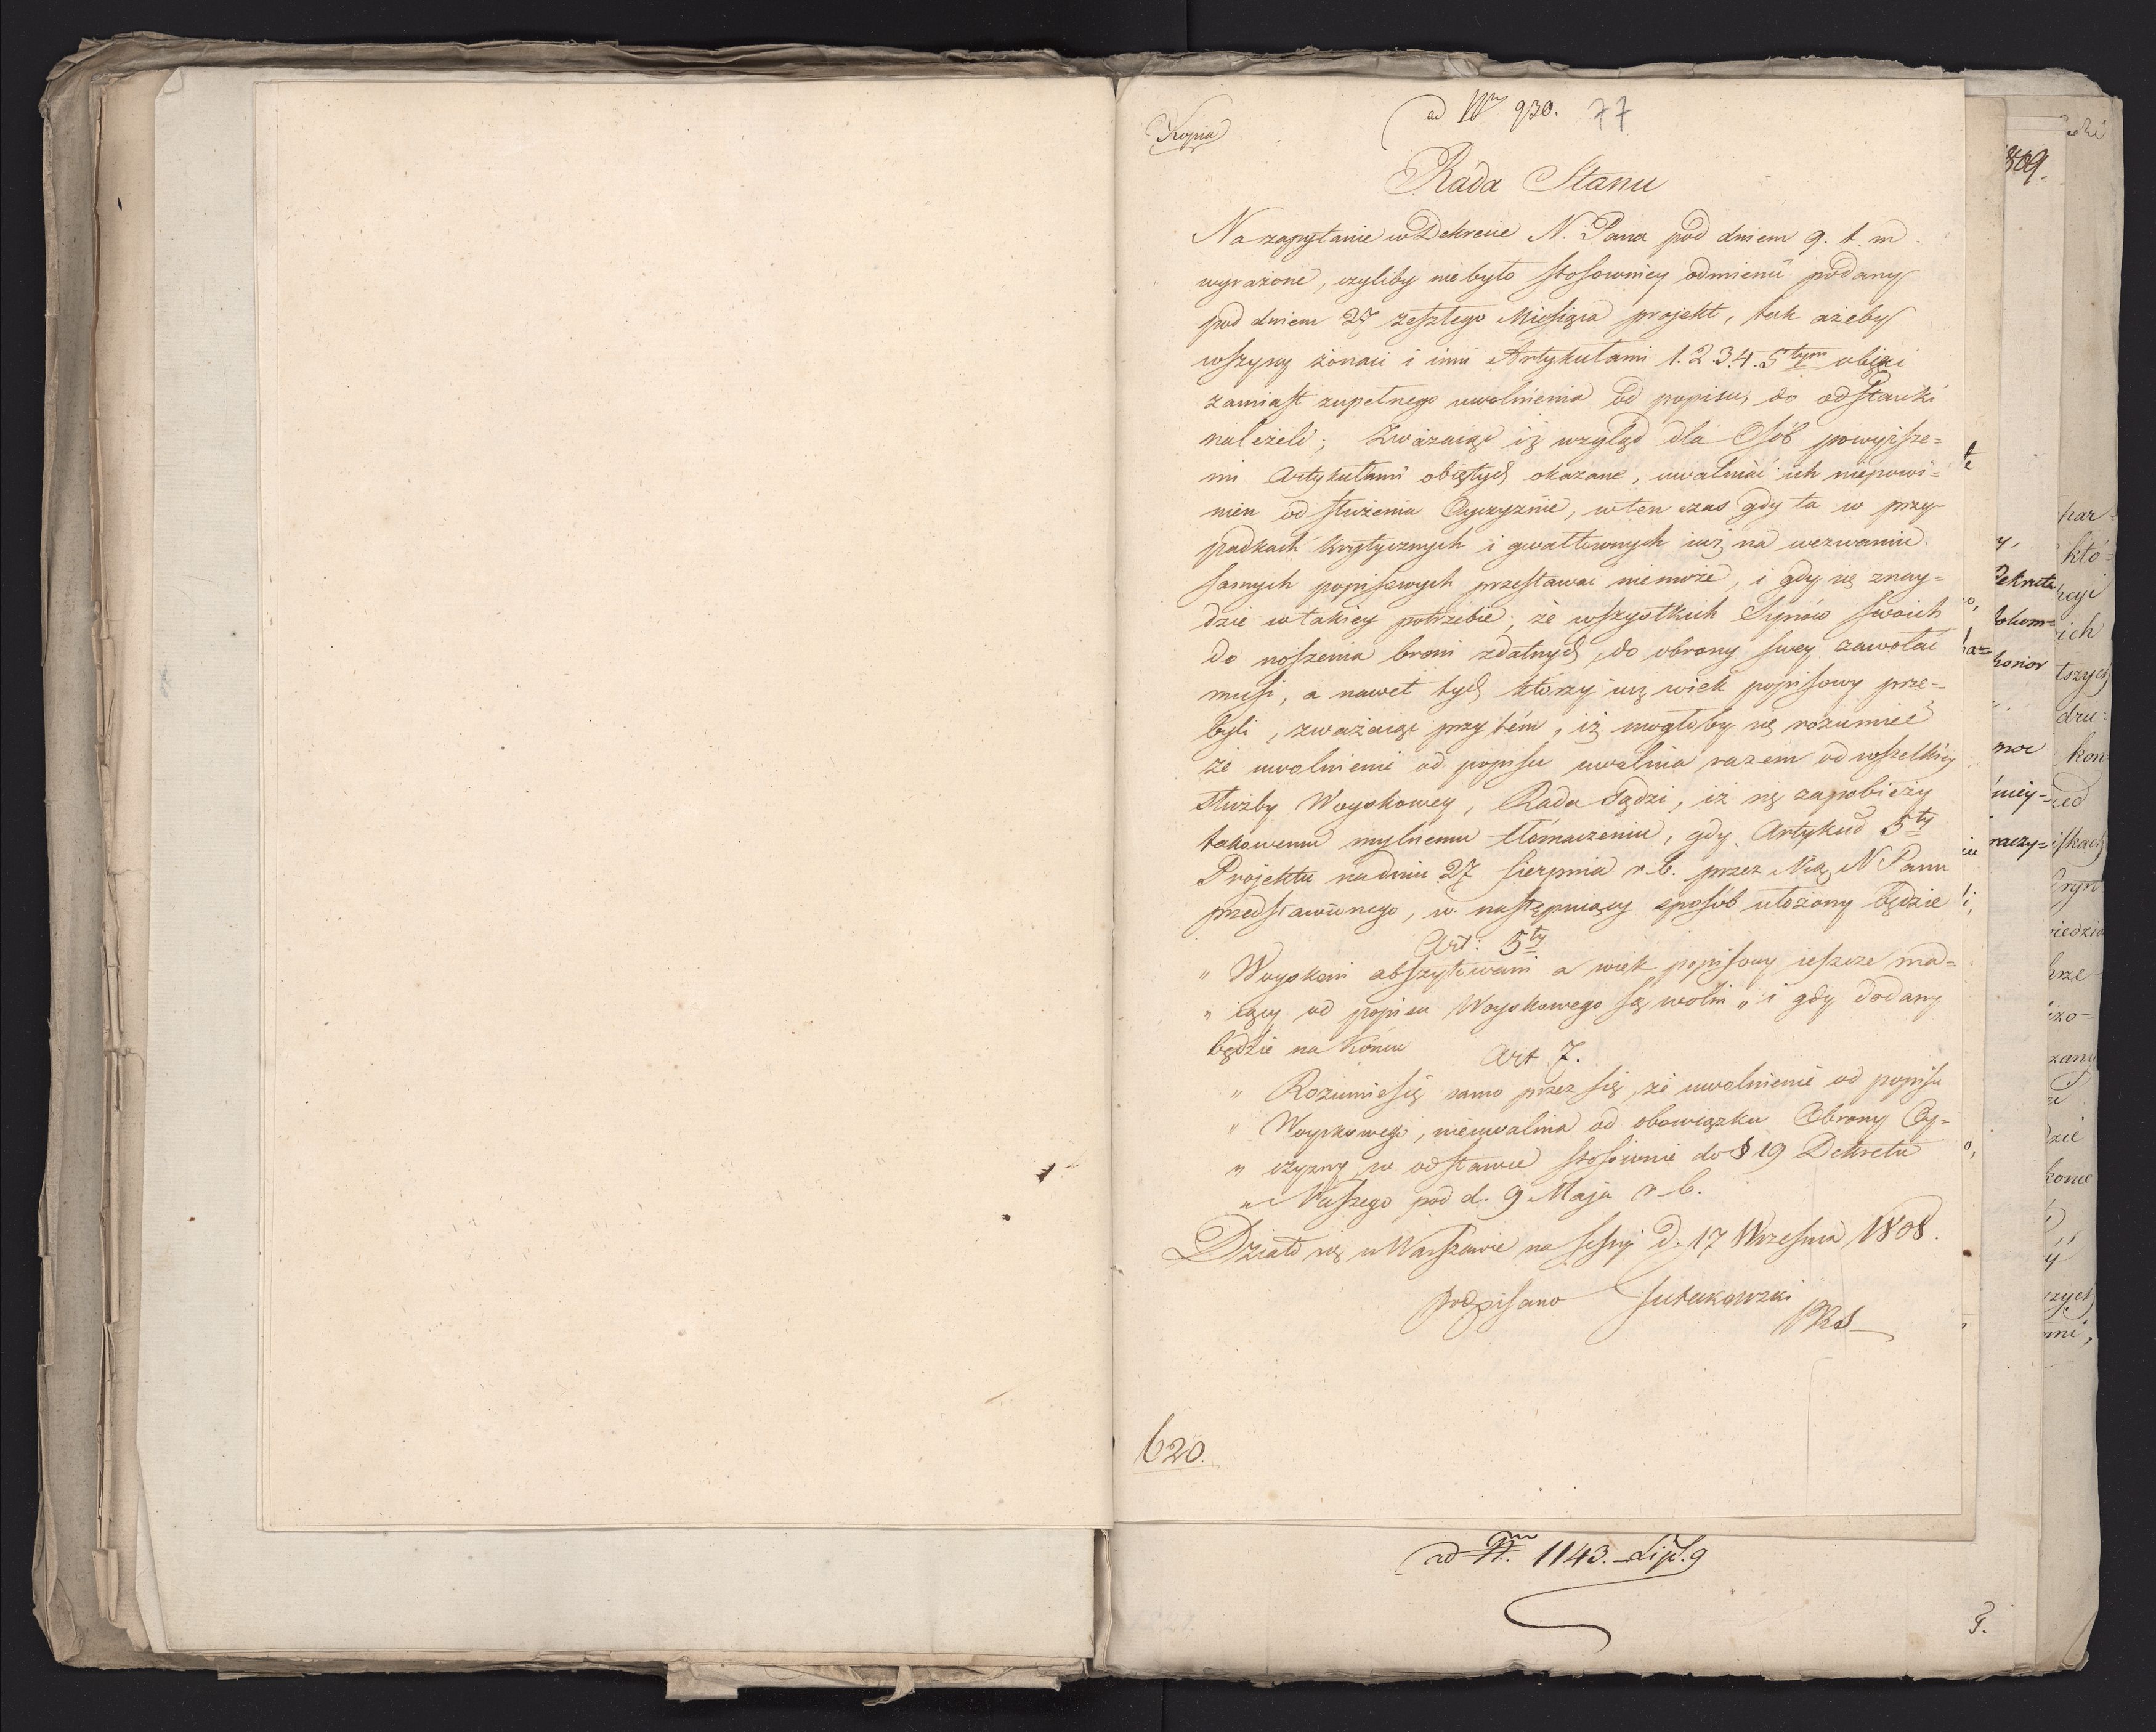 ad Nrm 930. 77
Kopia
Rada Stanu
Na zapytanie w Dekrecie N. Pana pod dniem 9. t. m.
wyrażone, czyliby niebyło stosowniey odmienić podany
pod dniem 27 zeszłego Miesiąca projekt, tak ażeby
wszyscy żonaci i inni Artykułami 1. 2. 3. 4. 5tym obięci
zamiast zupełnego uwolnienia od popisu, do odstawki
należeli; Zważaiąc iż wzgląd dla Osób powyższe=
mi Artykułami obiętych okazane, uwalniać ich niepowi=
nien od służenia Oyczyznie, w ten czas gdy ta w przy=
padkach krytycznych i gwałtownych iuż na wezwaniu
samych popisowych przestawać niemoże, i gdy się znay=
dzie w takiey potrzebie, że wszystkich Synów swoich
do noszenia broni zdatnych, do obrony swey zawołać
musi, a nawet tych którzy iuż wiek popisowy prze=
byli, zważaiąc przytém, iż mogłoby się rozumieć
że uwolnienie od popisu uwalnia razem od wszelkiey
służby Woyskowey, Rada Sądzi, iż się zapobieży
takowemu mylnemu tłómaczeniu, gdy Artykuł 5ty
Projektu na dniu 27 Sierpnia r. b. przez Nią N Panu
przedstawionego, w następuiący sposób ułożony będzie
Art: 5ty
" Woyskowi abszytowani a wiek popisowy ieszcze ma=
" iący od popisu Woyskowego są wolni " i gdy dodany
będzie na końcu Art 7.
" Rozumie się samo przez się, że uwolnienie od popisu
" Woyskowego, nieuwalnia od obowiązku Obrony Oy=
" czyzny w odstawce stosownie do § 19 Dekretu
" Naszego pod d. 9 Maja r. b.
Działo się w Warszawie na sessyi d. 17 Września 1808.
podpisano Gutakowski
PRS
620.
ad Nrm 1143. Lipl. 9